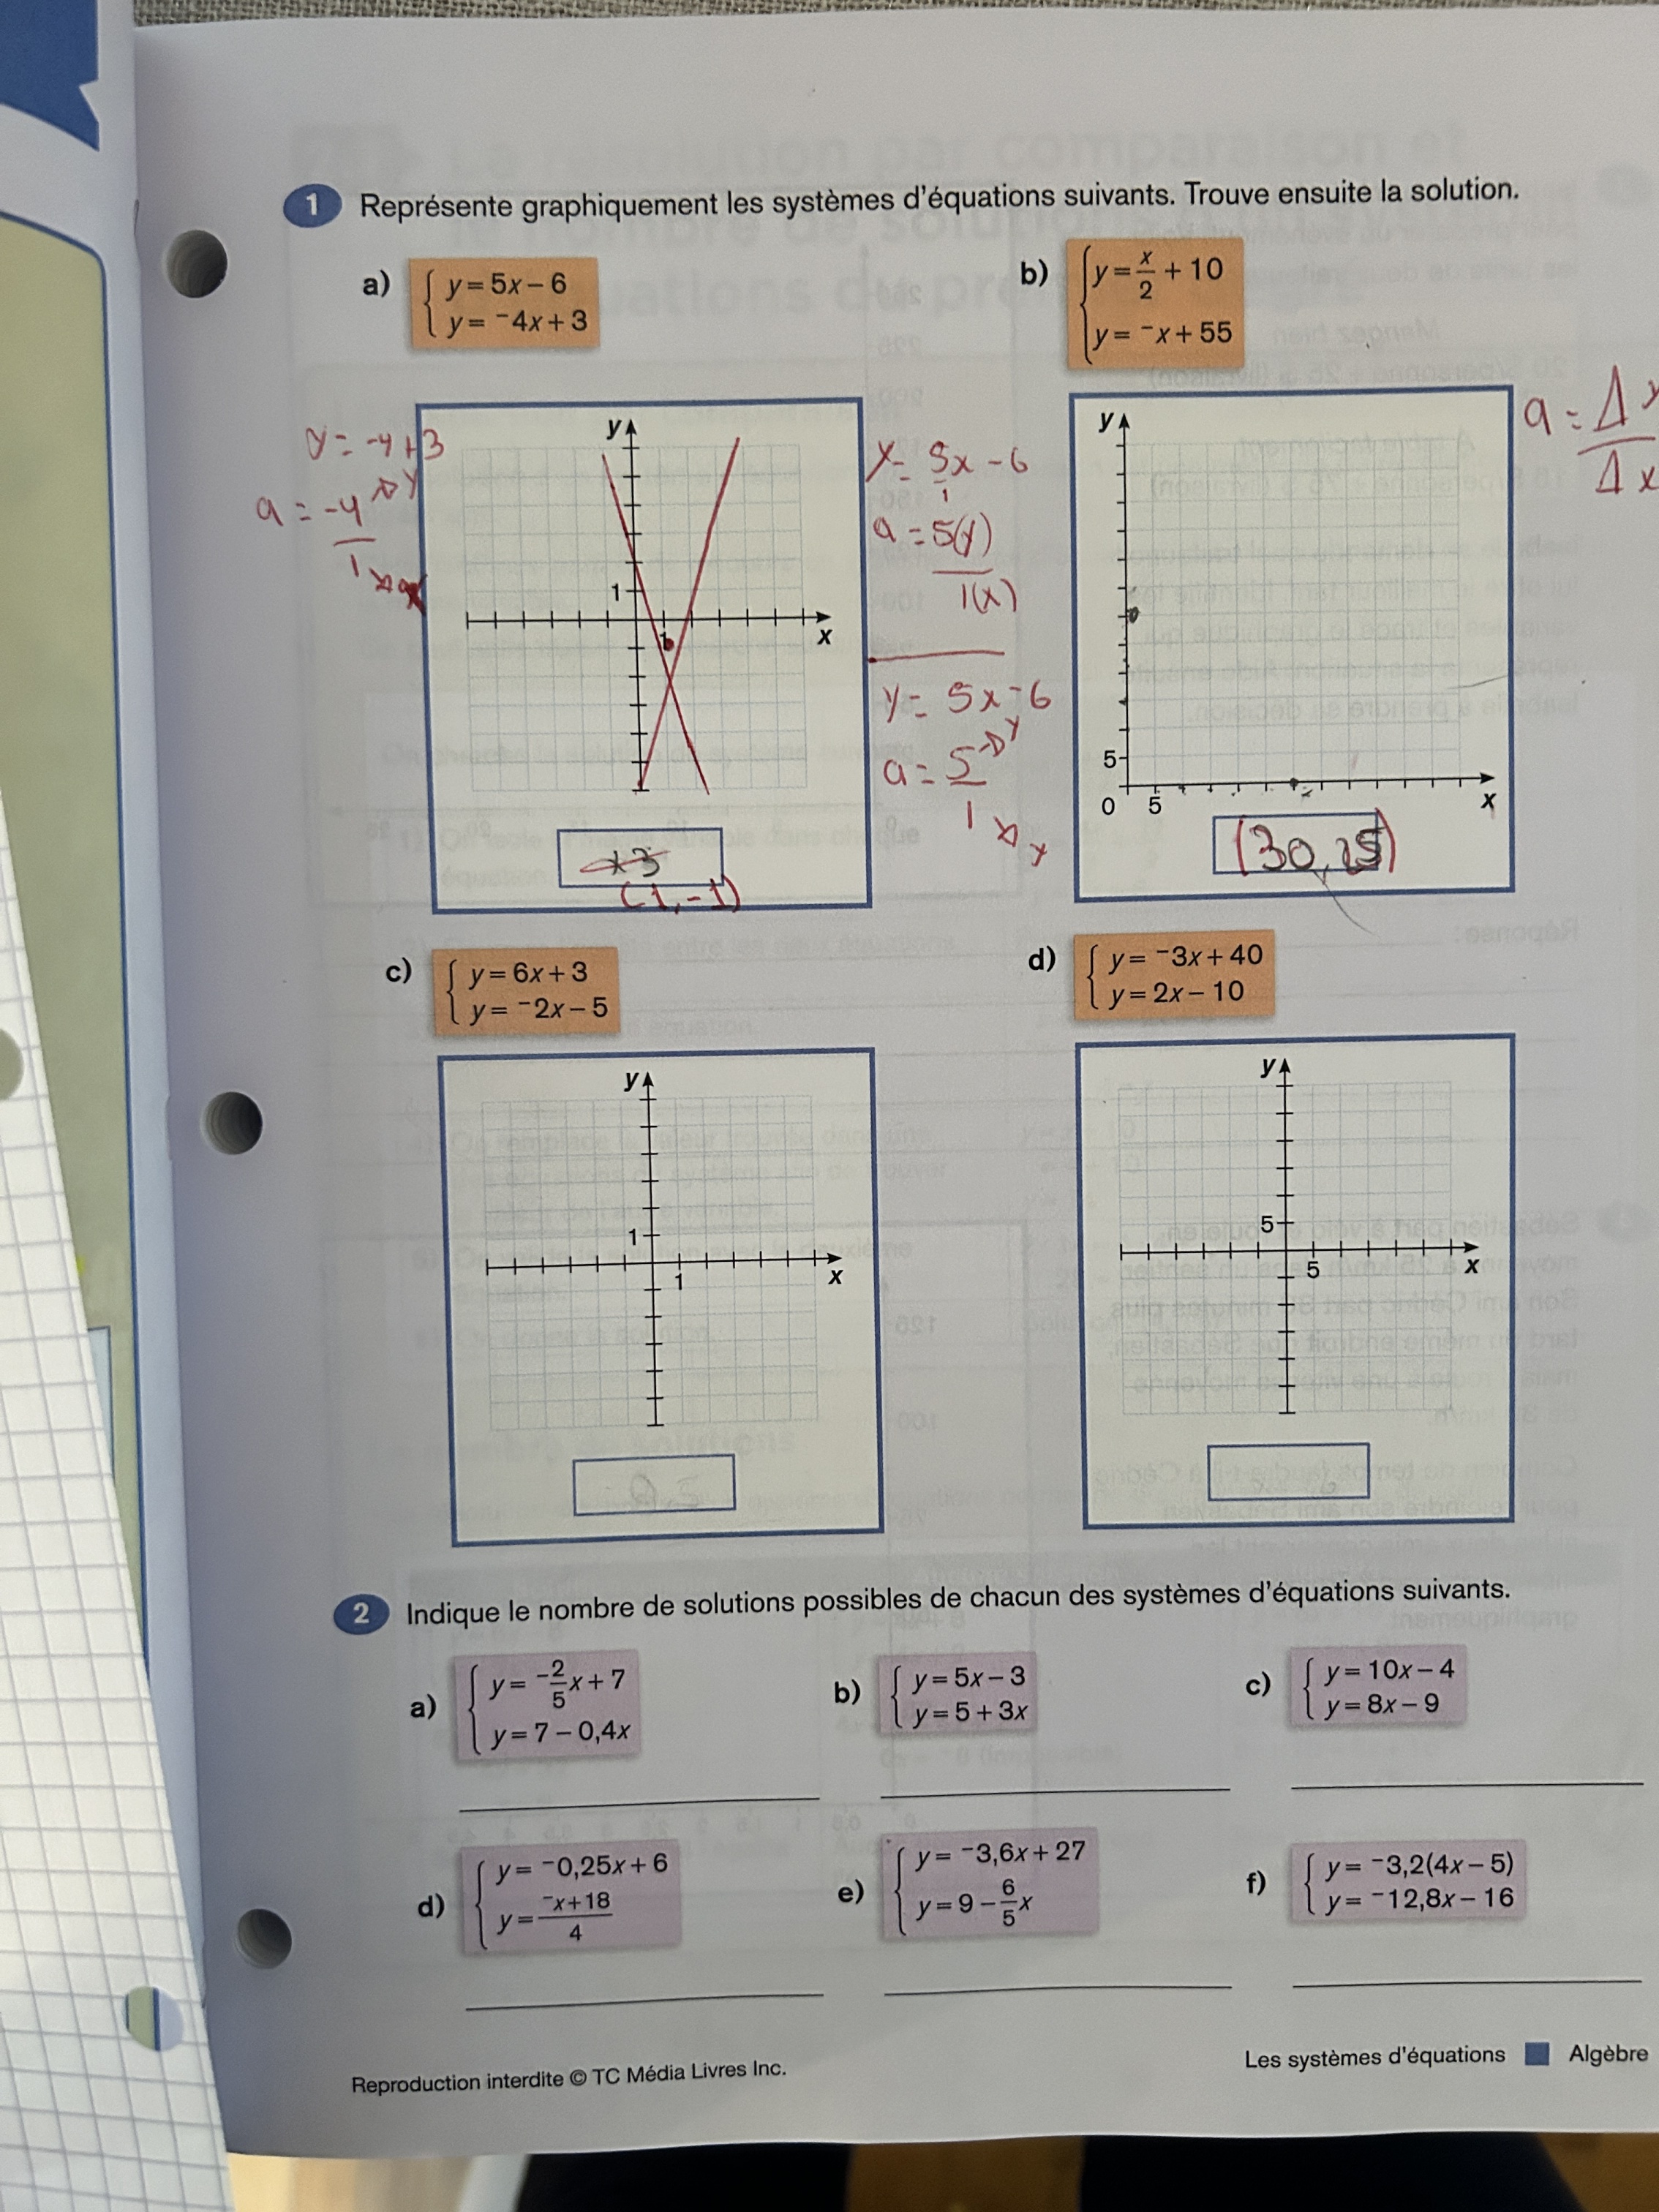 1 Représente graphiquement les systèmes d'équations suivants. Trouve ensuite la solution.
a) { y = 5x – 6
y = ⁻4x + 3
b) { y = x/2 + 10
y = ⁻x + 55
y = -4+3
a = -4/1
y
1
x
(1,-1)
y = 5x - 6
1
a = 5(y)/1(x)
y = 5x - 6
a = 5/1
y
x
y
5
0 5 x
(30,25)
a = Δy/Δx
c) { y = 6x + 3
y = ⁻2x – 5
d) { y = ⁻3x + 40
y = 2x – 10
y
1
1
x
y
5
5
x
2 Indique le nombre de solutions possibles de chacun des systèmes d'équations suivants.
a) { y = ⁻2/5x + 7
y = 7 – 0,4x
b) { y = 5x – 3
y = 5 + 3x
c) { y = 10x – 4
y = 8x – 9
d) { y = ⁻0,25x + 6
y = ⁻x + 18/4
e) { y = ⁻3,6x + 27
y = 9 – 6/5x
f) { y = ⁻3,2(4x – 5)
y = ⁻12,8x – 16
Reproduction interdite © TC Média Livres Inc.
Les systèmes d'équations ■ Algèbre